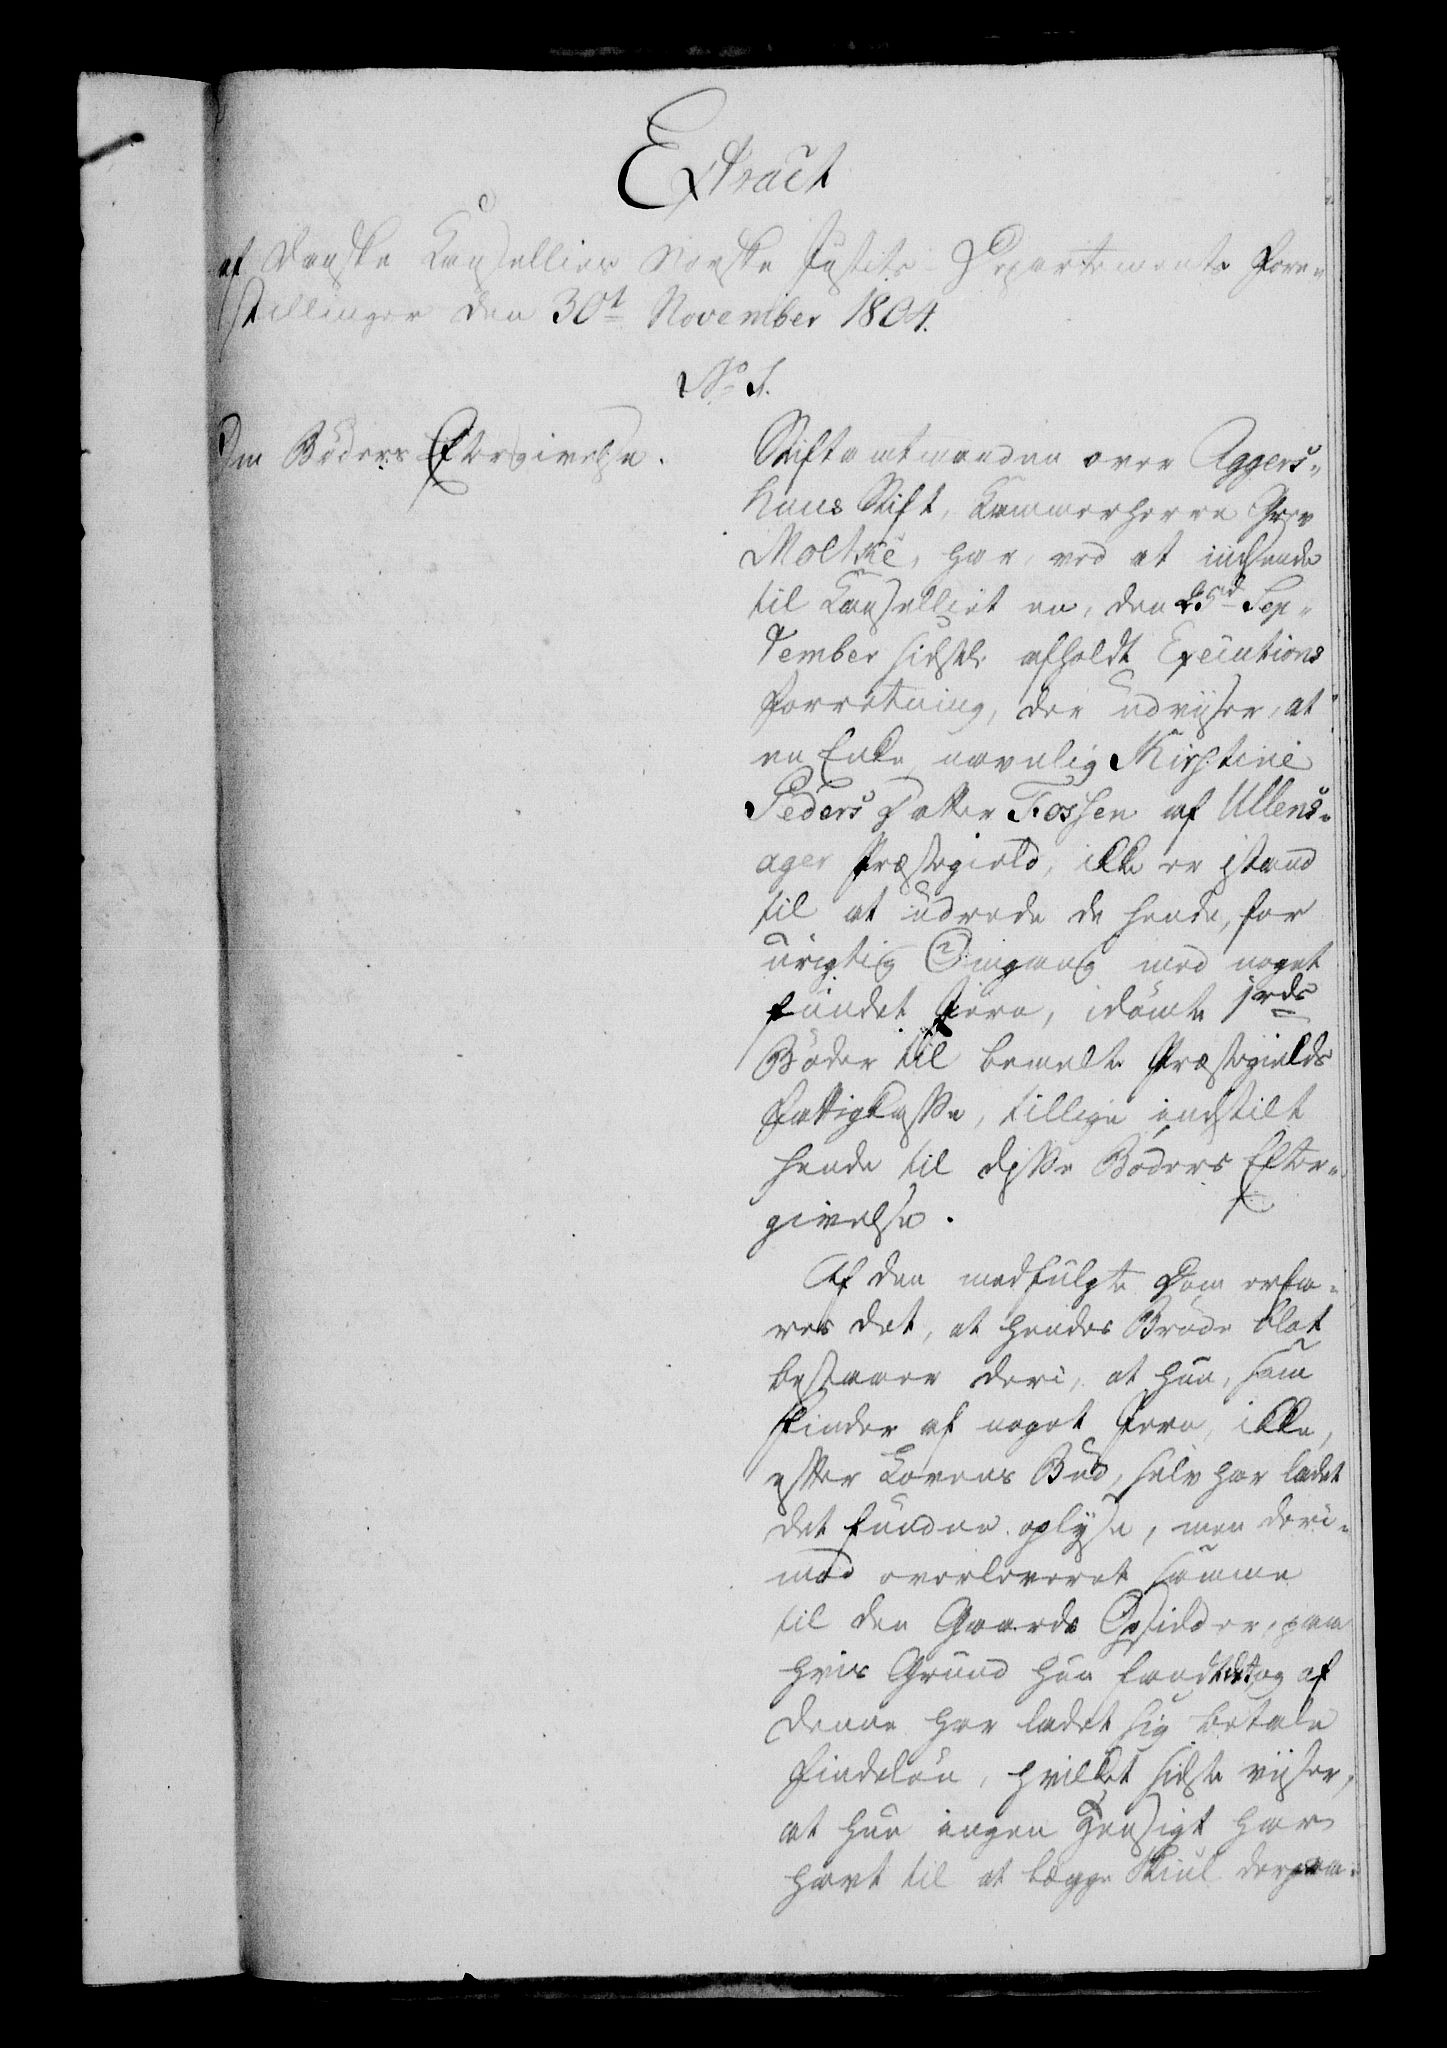 Extract
af Danske Cancellies Norske Justits Departements Fore-
stillinger den 30t November 1804.
No 1.
Om Böders Eftergivelse.
Stiftamtmanden over Aggers-
huus Stift, Kammerherre Grev
Moltke, har, ved at indsende
til Cancelliet en, den 25d Sep-
tember sidstl. afholdt Executions
Forretning, der udviiser, at
en Enke navnlig Kirstine
Peders Datter Fossen af Ullens-
ager Præstegield, ikke er istand
til at udrede de hende, for
urigtig Omgang med noget
fundet Jern, idömte 1 rds
Böder til bemelte Præstegields
Fattigkasse, tillige indstilt
hende til disse Böders Efter-
givelse.
Af den medfulgte Dom erfa-
res det, at hendes Bröde blot
bestaaer deri, at hun, som
Finder af noget Jern, ikke,
efter Lovens Bud, selv har ladet
det fundne oplyse, men deri-
mod overleveret samme
til den Gaards Opsidder, paa
hvis Grund hun fandt det og af
denne har ladet sig betale
Findelön, hvilket sidste viiser,
at hun ingen Hensigt har
havt til at lægge Skiul derpaa.